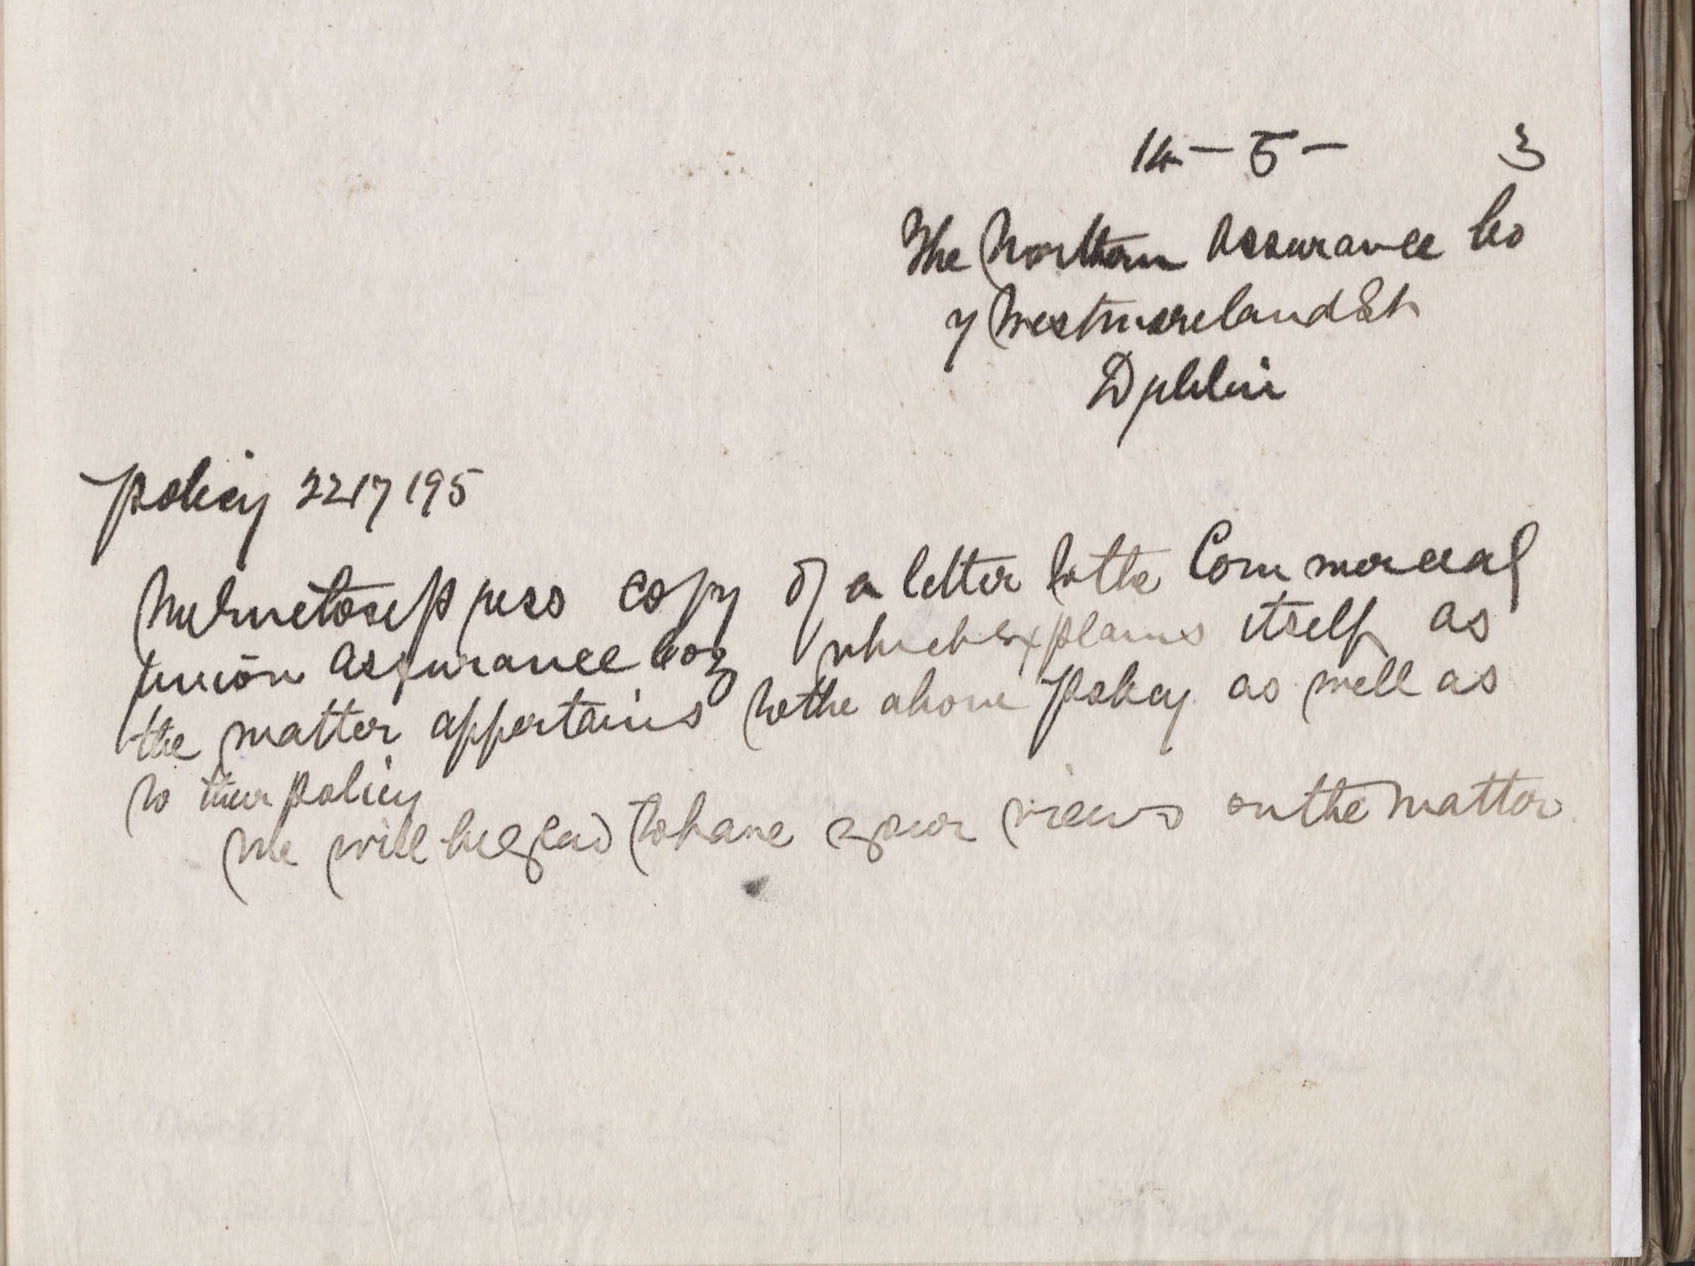 14 - 5 - 3
The Northern Assurance Co
7 Westmoreland St
Dublin
Policy 2217195
We enclose press copy of a letter to the Commercial
Union Assurance Coy which explains itself as
the matter appertains to the above policy as well as
to their policy
We will be glad to have your views on the matter